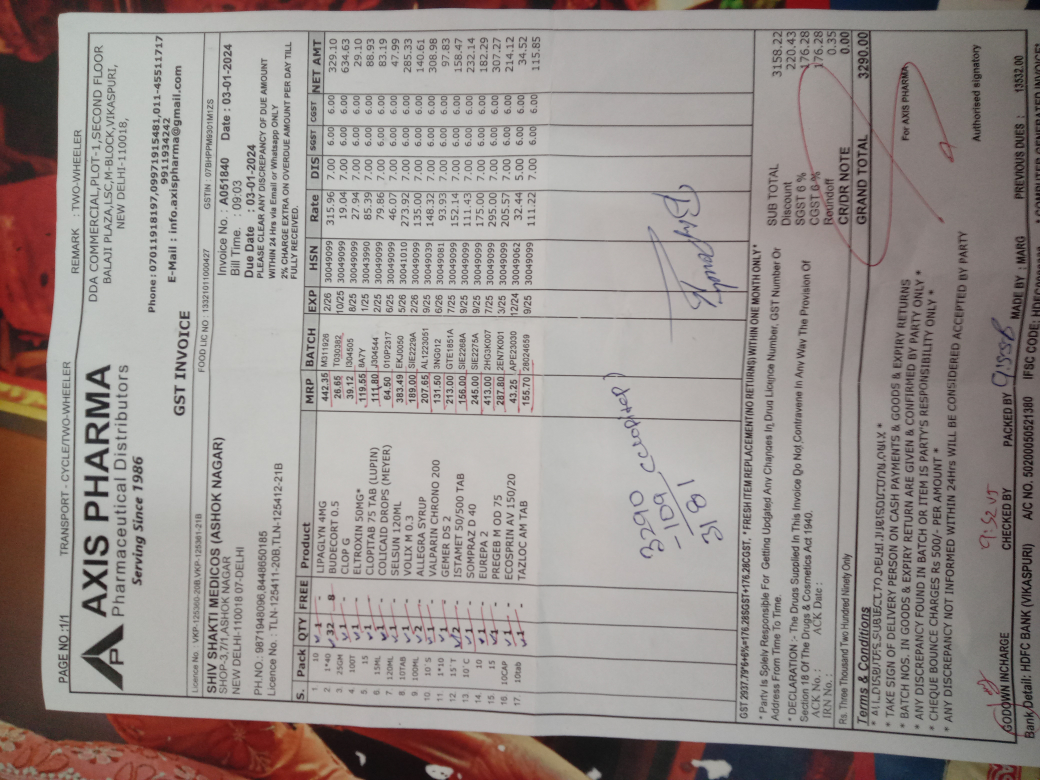 PAGE NO -1/1 TRANSPORT - CYCLE/TWO-WHEELER REMARK : TWO-WHEELER
AXIS PHARMA
Pharmaceutical Distributors
Serving Since 1986
DDA COMMERCIAL,PLOT-1,SECOND FLOOR
BALAJI PLAZA,LSC,M-BLOCK,VIKASPURI,
NEW DELHI-110018,
Phone : 07011918197,09971915481,011-45511717
9911934242
E-Mail : info.axispharma@gmail.com
GST INVOICE
Licence No : VKP-125360-20B,VKP-125361-21B FOOD LIC NO : 13321011000427 GSTIN : 07BHPPM9301M1ZS
SHIV SHAKTI MEDICOS (ASHOK NAGAR)
SHOP-3,7/1,ASHOK NAGAR
NEW DELHI-110018 07-DELHI
PH.NO.: 9871948096,8448650185
Licence No.: TLN-125411-20B,TLN-125412-21B
Invoice No.: A051840 Date : 03-01-2024
Bill Time. : 09:03
Due Date : 03-01-2024
PLEASE CLEAR ANY DISCREPANCY OF DUE AMOUNT
WITHIN 24 Hrs via Email or Whatsapp ONLY
2% CHARGE EXTRA ON OVERDUE AMOUNT PER DAY TILL
FULLY RECEIVED.
S. Pack QTY FREE Product MRP BATCH EXP HSN Rate DIS SGST CGST NET AMT
1. 10 1 - LIPAGLYN 4MG 442.35 M311926 2/26 30049099 315.96 7.00 6.00 6.00 329.10
2. 1*40 32 8 BUDECORT 0.5 26.65 T030382 10/25 30049099 19.04 7.00 6.00 6.00 634.63
3. 25GM 1 - CLOP G 39.12 I304505 8/25 30049099 27.94 7.00 6.00 6.00 29.10
4. 100T 1 - ELTROXIN 50MG* 119.55 8A7Y 1/25 30043990 85.39 7.00 6.00 6.00 88.93
5. 15 1 - CLOPITAB 75 TAB (LUPIN) 111.80 J304544 2/25 30049099 79.86 7.00 6.00 6.00 83.19
6. 15ML 1 - COLICAID DROPS (MEYER) 64.50 010P2317 6/25 30049099 46.07 7.00 6.00 6.00 47.99
7. 120ML 1 - SELSUN 120ML 383.49 EKJ0050 5/26 30041010 273.92 7.00 6.00 6.00 285.33
8. 10TAB 1 - VOLIX M 0.3 189.00 SIE2229A 2/26 30049099 135.00 7.00 6.00 6.00 140.61
9. 100ML 2 - ALLEGRA SYRUP 207.65 AL1223051 9/25 30049039 148.32 7.00 6.00 6.00 308.98
10. 10`S 1 - VALPARIN CHRONO 200 131.50 3NG012 6/26 30049081 93.93 7.00 6.00 6.00 97.83
11. 1*10 1 - GEMER DS 2 213.00 GTE1851A 7/25 30049099 152.14 7.00 6.00 6.00 158.47
12. 15`T 2 - ISTAMET 50/500 TAB 156.00 SIE2268A 9/25 30049099 111.43 7.00 6.00 6.00 232.14
13. 10`C 1 - SOMPRAZ D 40 245.00 SIE2275A 9/25 30049099 175.00 7.00 6.00 6.00 182.29
14. 10 1 - EUREPA 2 413.00 2HG3K007 7/25 30049099 295.00 7.00 6.00 6.00 307.27
15. 15 1 - PREGEB M OD 75 287.80 2EN7K001 3/25 30049099 205.57 7.00 6.00 6.00 214.12
16. 10CAP 1 - ECOSPRIN AV 150/20 43.25 APE23030 12/24 30049062 32.44 5.00 6.00 6.00 34.52
17. 10tab 1 - TAZLOC AM TAB 155.70 28024659 9/25 30049099 111.22 7.00 6.00 6.00 115.85
3290
-109 Clopitab
3181
GST 2937.79*6+6%=176.28SGST+176.28CGST, * FRESH ITEM REPLACEMENT(NO RETURNS) WITHIN ONE MONTH ONLY *
* Party Is Solely Responsible For Getting Updated Any Changes In Drug Licence Number, GST Number Or
Address From Time To Time.
* DECLARATION :- The Drugs Supplied In This Invoice Do Not Contravene In Any Way The Provision Of
Section 18 Of The Drugs & Cosmetics Act 1940.
ACK No. : ACK Date :
IRN No. :
SUB TOTAL 3158.22
Discount 220.43
SGST 6 % 176.28
CGST 6 % 176.28
Roundoff 0.35
CR/DR NOTE 0.00
Rs. Three Thousand Two Hundred Ninety Only
GRAND TOTAL 3290.00
Terms & Conditions
* ALL DISPUTES SUBJECT TO DELHI JURISDICTION ONLY *
* TAKE SIGN OF DELIVERY PERSON ON CASH PAYMENTS & GOODS & EXPIRY RETURNS
* BATCH NOS. IN GOODS & EXPIRY RETURN ARE GIVEN & CONFIRMED BY PARTY ONLY *
* ANY DISCREPANCY FOUND IN BATCH OR ITEM IS PARTY'S RESPONSIBILITY ONLY *
* CHEQUE BOUNCE CHARGES Rs 500/- PER AMOUNT *
* ANY DISCREPANCY NOT INFORMED WITHIN 24Hrs WILL BE CONSIDERED ACCEPTED BY PARTY
For AXIS PHARMA
Authorised signatory
GODOWN INCHARGE CHECKED BY PACKED BY MADE BY : MARG PREVIOUS DUES : 13532.00
Bank Detail: HDFC BANK (VIKASPURI) A/C NO. 50200050521380 IFSC CODE: